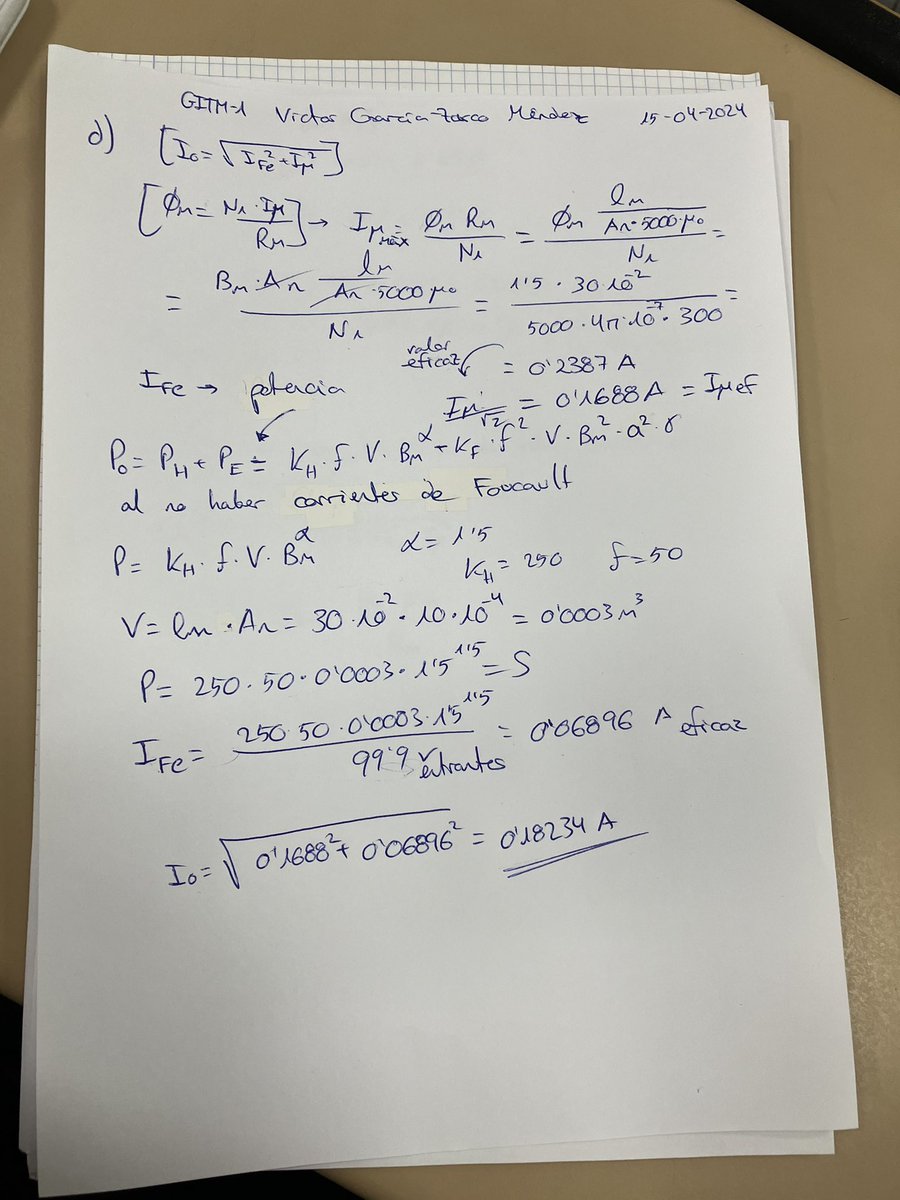 GITM-1 Victor García-Zarco Méndez 15-04-2024
d) [I₀ = √(I_Fe² + I_μ²)]
[Φm = N₁ · Iμ / Rm] → Iμ máx = Φm Rm / N₁ = Φm (lm / (An · 5000 · μ₀)) / N₁ =
= Bm · An (lm / (An · 5000 μ₀)) / N₁ = 1'5 · 30·10⁻² / (5000 · 4π·10⁻⁷ · 300) =
valor eficaz = 0'2387 A
I_Fe → potencia
Iμ/√2 = 0'1688 A = Iμef
P₀ = P_H + P_E = K_H · f · V · Bm^α + K_F · f² · V · Bm² · a² · γ
al no haber corrientes de Foucault
P = K_H · f · V · Bm^α α = 1'5
K_H = 250 f = 50
V = lm · An = 30·10⁻² · 10·10⁻⁴ = 0'0003 m³
P = 250 · 50 · 0'0003 · 1'5^1'5 = S
I_Fe = 250·50·0'0003·1'5^1'5 / 99'9 V entrantes = 0'06896 A eficaz
I₀ = √(0'1688² + 0'06896²) = 0'18234 A